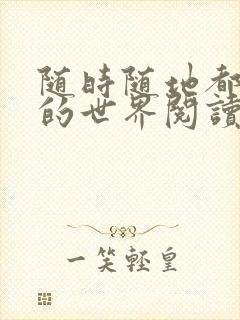 随時随地都
的世界閱讀
一笑輕皇